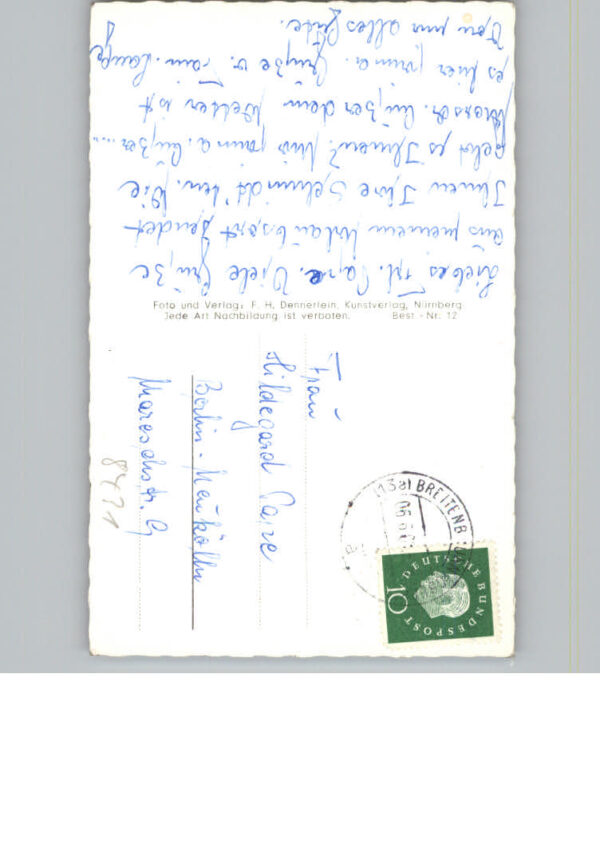 Liebes Frl. Viele Grüße
aus meinem Urlaubsort sendet
Ihnen Ihre Wie
geht es Ihnen? Mir prima. Außer....
Außer dem Wetter ist
es hier prima. Grüße v. Fam. Lange
nun alles Gute.
Foto und Verlag: F. H. Dennerlein, Kunstverlag, Nürnberg
Jede Art Nachbildung ist verboten. Best.-Nr. 12
Frau
Hildegard
Berlin-Neukölln
Mareschstr.
8471
(13a) BREITENB
DEUTSCHE BUNDESPOST
10